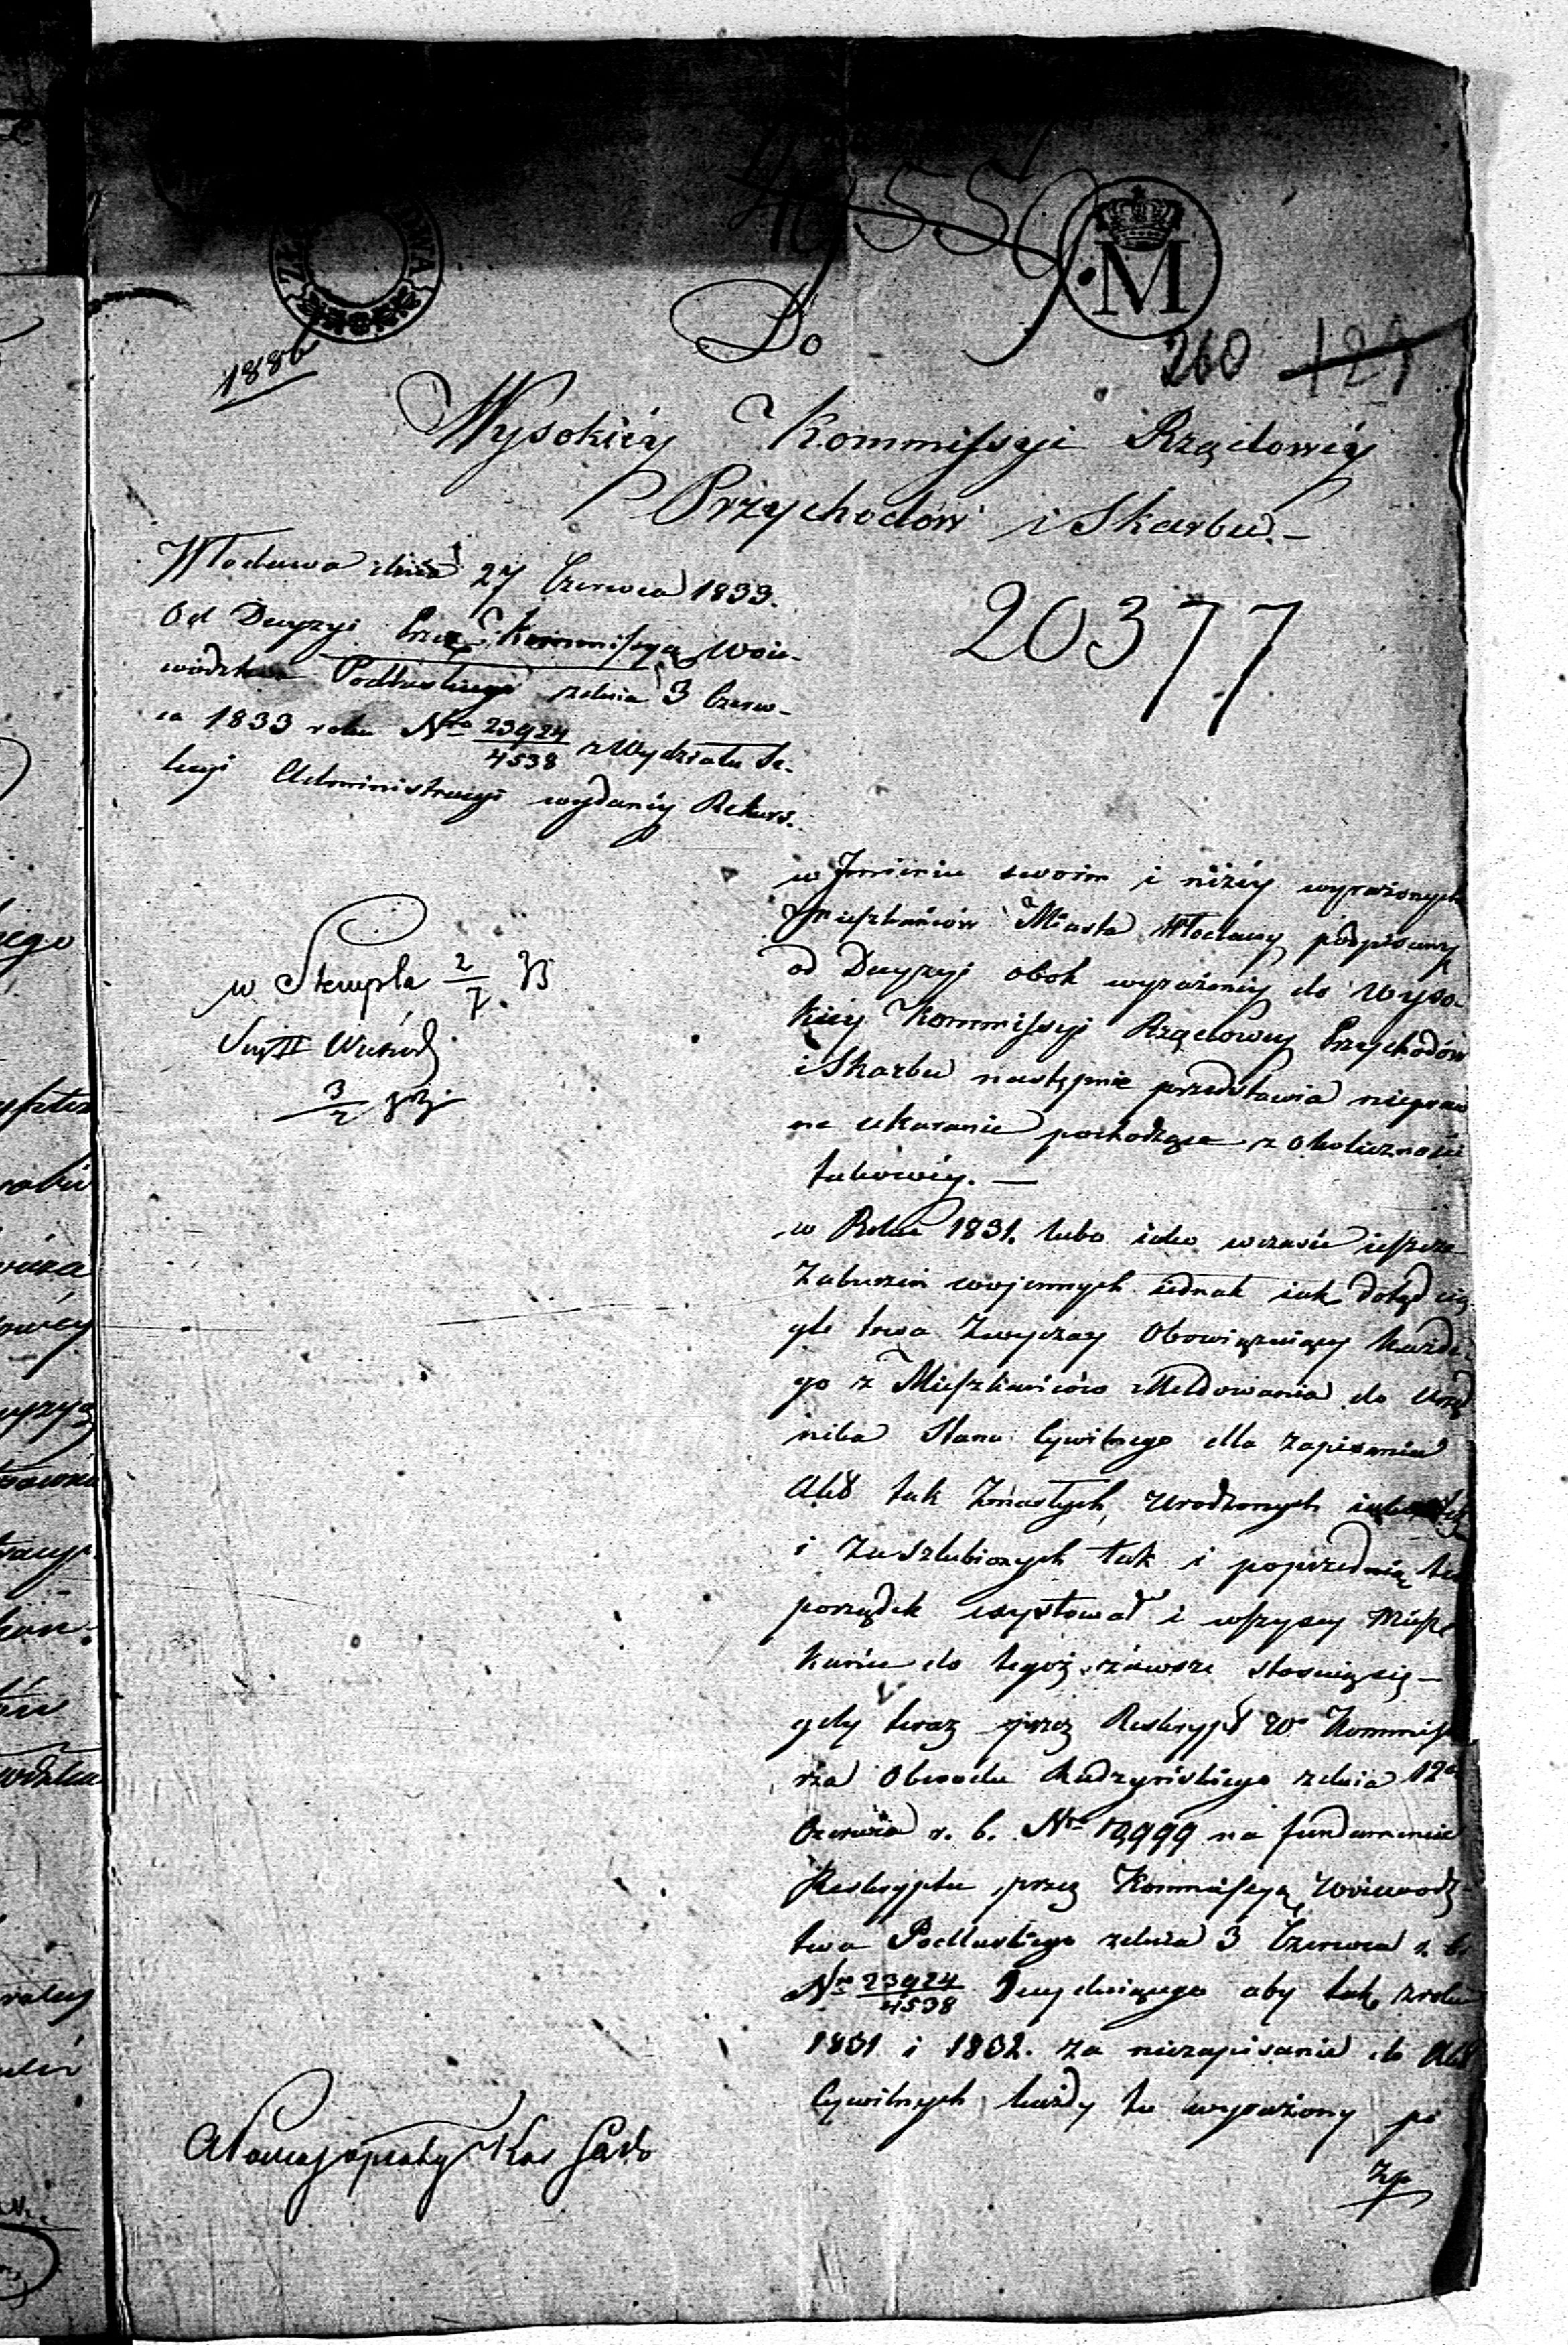 4655
M
Do
1886
260 129
Wysokiéy Kommissyi Rządowéy
Przychodów i Skarbu.-
Włodawa dnia 27 Czerwca 1833.
Od Decyzyi przez Kommissyą Woie-
wództwa Podlaskiego z dnia 3 Czerw-
ca 1833 roku Nro 23924/4538 z Wydziału Se-
kcyi Administracyi wydanéy Rekurs.
20377
w Imieniu swoim i niżéy wyrażonych
Mieszkańców Miasta Włodawy podpisany
od Decyzyi obok wyrażonéy do Wyso-
kiéy Kommissyi Rządowéy Przychodów
i Skarbu następnie przedstawia niepraw
ne ukaranie pochodzące z okoliczności
takowéy. —
w Stempla 2/7 33
3/7
w Roku 1831. lubo iako w czasie ieszcze
Zaburzeń woiennych iednak iak dotąd cią
gle trwa Zwyczay Obowiązuiący każde-
go z Mieszkańców Meldowania do Urzęd
nika Stanu Cywilnego dla zapisania
Akt tak Zmarłych, Urodzonych
i Zaszlubionych tak i poprzednio ten
porządek exystował i wszyscy Miesz
kańcy do tegoż zawsze stosuią się —
gdy teraz przez Reskrypt Wo Kommissa
rza Obwodu Radzyńskiego z dnia 12
Czerwca r. b. Nro 19999 na fundamencie
Reskryptu przez Kommissyą Woiewódz
twa Podlaskiego z dnia 3 Czerwca r. b.
Nro 23924/4538 Decyduiącego aby tak z roku
1831 i 1832. za niezapisanie do Akt
Cywilnych każdy tu wyrażony po
Zp